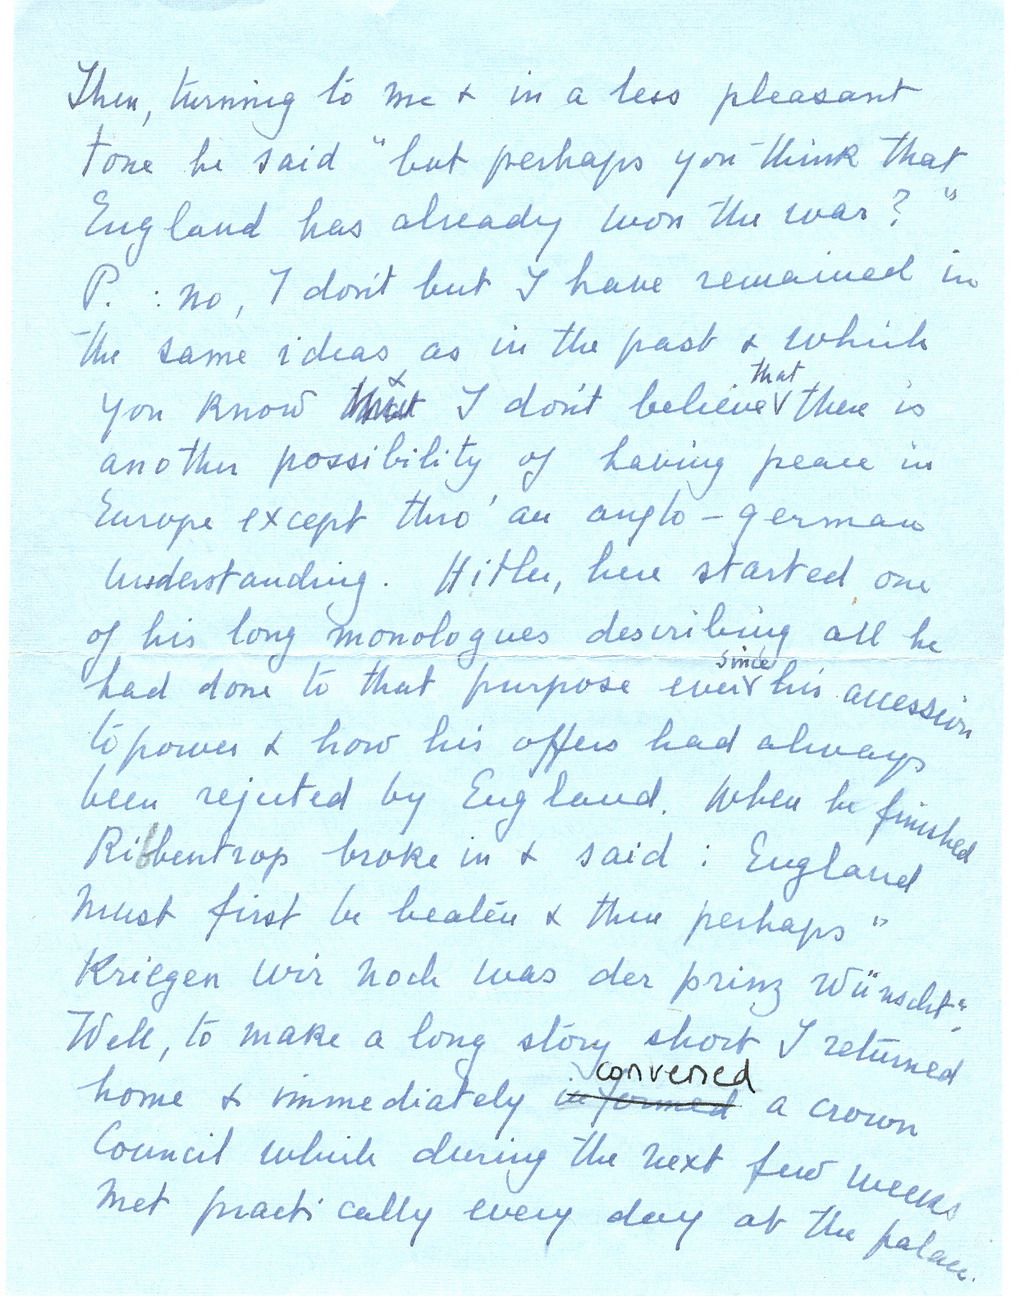 Then, turning to me & in a less pleasant
tone he said "but perhaps you think that
England has already won the war?"
P. : no, I don't but I have remained in
the same ideas as in the past & which
you know & I don't believe that there is
another possibility of having peace in
Europe except thro' an anglo-german
understanding. Hitler, here started one
of his long monologues describing all he
had done to that purpose ever since his accession
to power & how his offers had always
been rejected by England. When he finished
Ribbentrop broke in & said : England
must first be beaten & then perhaps "
Kriegen wir noch was der prinz wünscht".
Well, to make a long story short I returned
home & immediately informed convened a crown
Council which during the next few weeks
met practically every day at the palace.